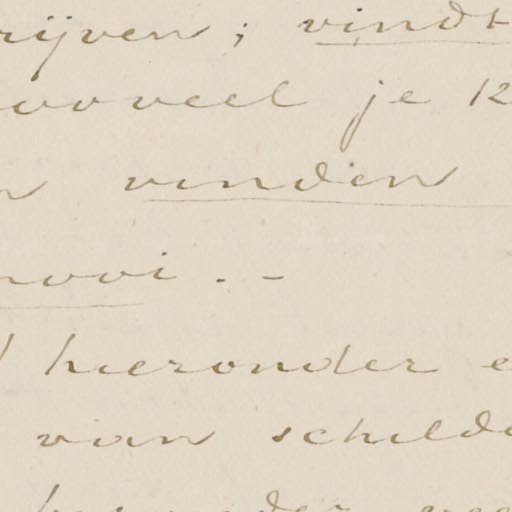 rijven; vindt
zooveel je 12
n vinden
mooi. -
hieronder e
van schilde